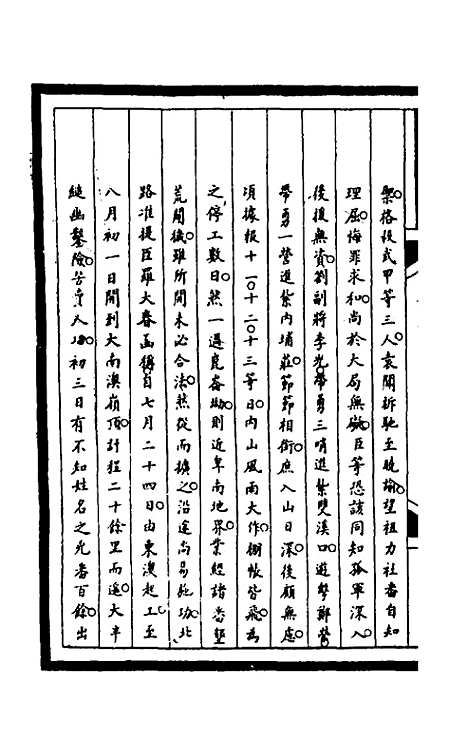 樂格後武甲等三人哀聞訴馳至曉諭望祖力社番自知
理屈悔罪求和尚於大局無礙臣等恐該同知孤軍深入
後援無資劉副將李光帶勇三哨進紮雙溪口遊擊鄭榮
帶勇一營進紮內埔莊節節相銜庶入山日深後顧無虞
頃據報十一十二十三等日內山風雨大作棚帳皆飛為
之停工數日然一過崑崙坳則近卑南地界業經諸番墾
荒闢穢雖所開未必合法然從而擴之沿途尚易施功北
路准提臣羅大春函稱自七月二十四日由東澳起工至
八月初一日開到大南澳嶺頂計程二十餘里而遙大半
縋幽鑿險苦費人功初三日有不知姓名之兇番百餘出